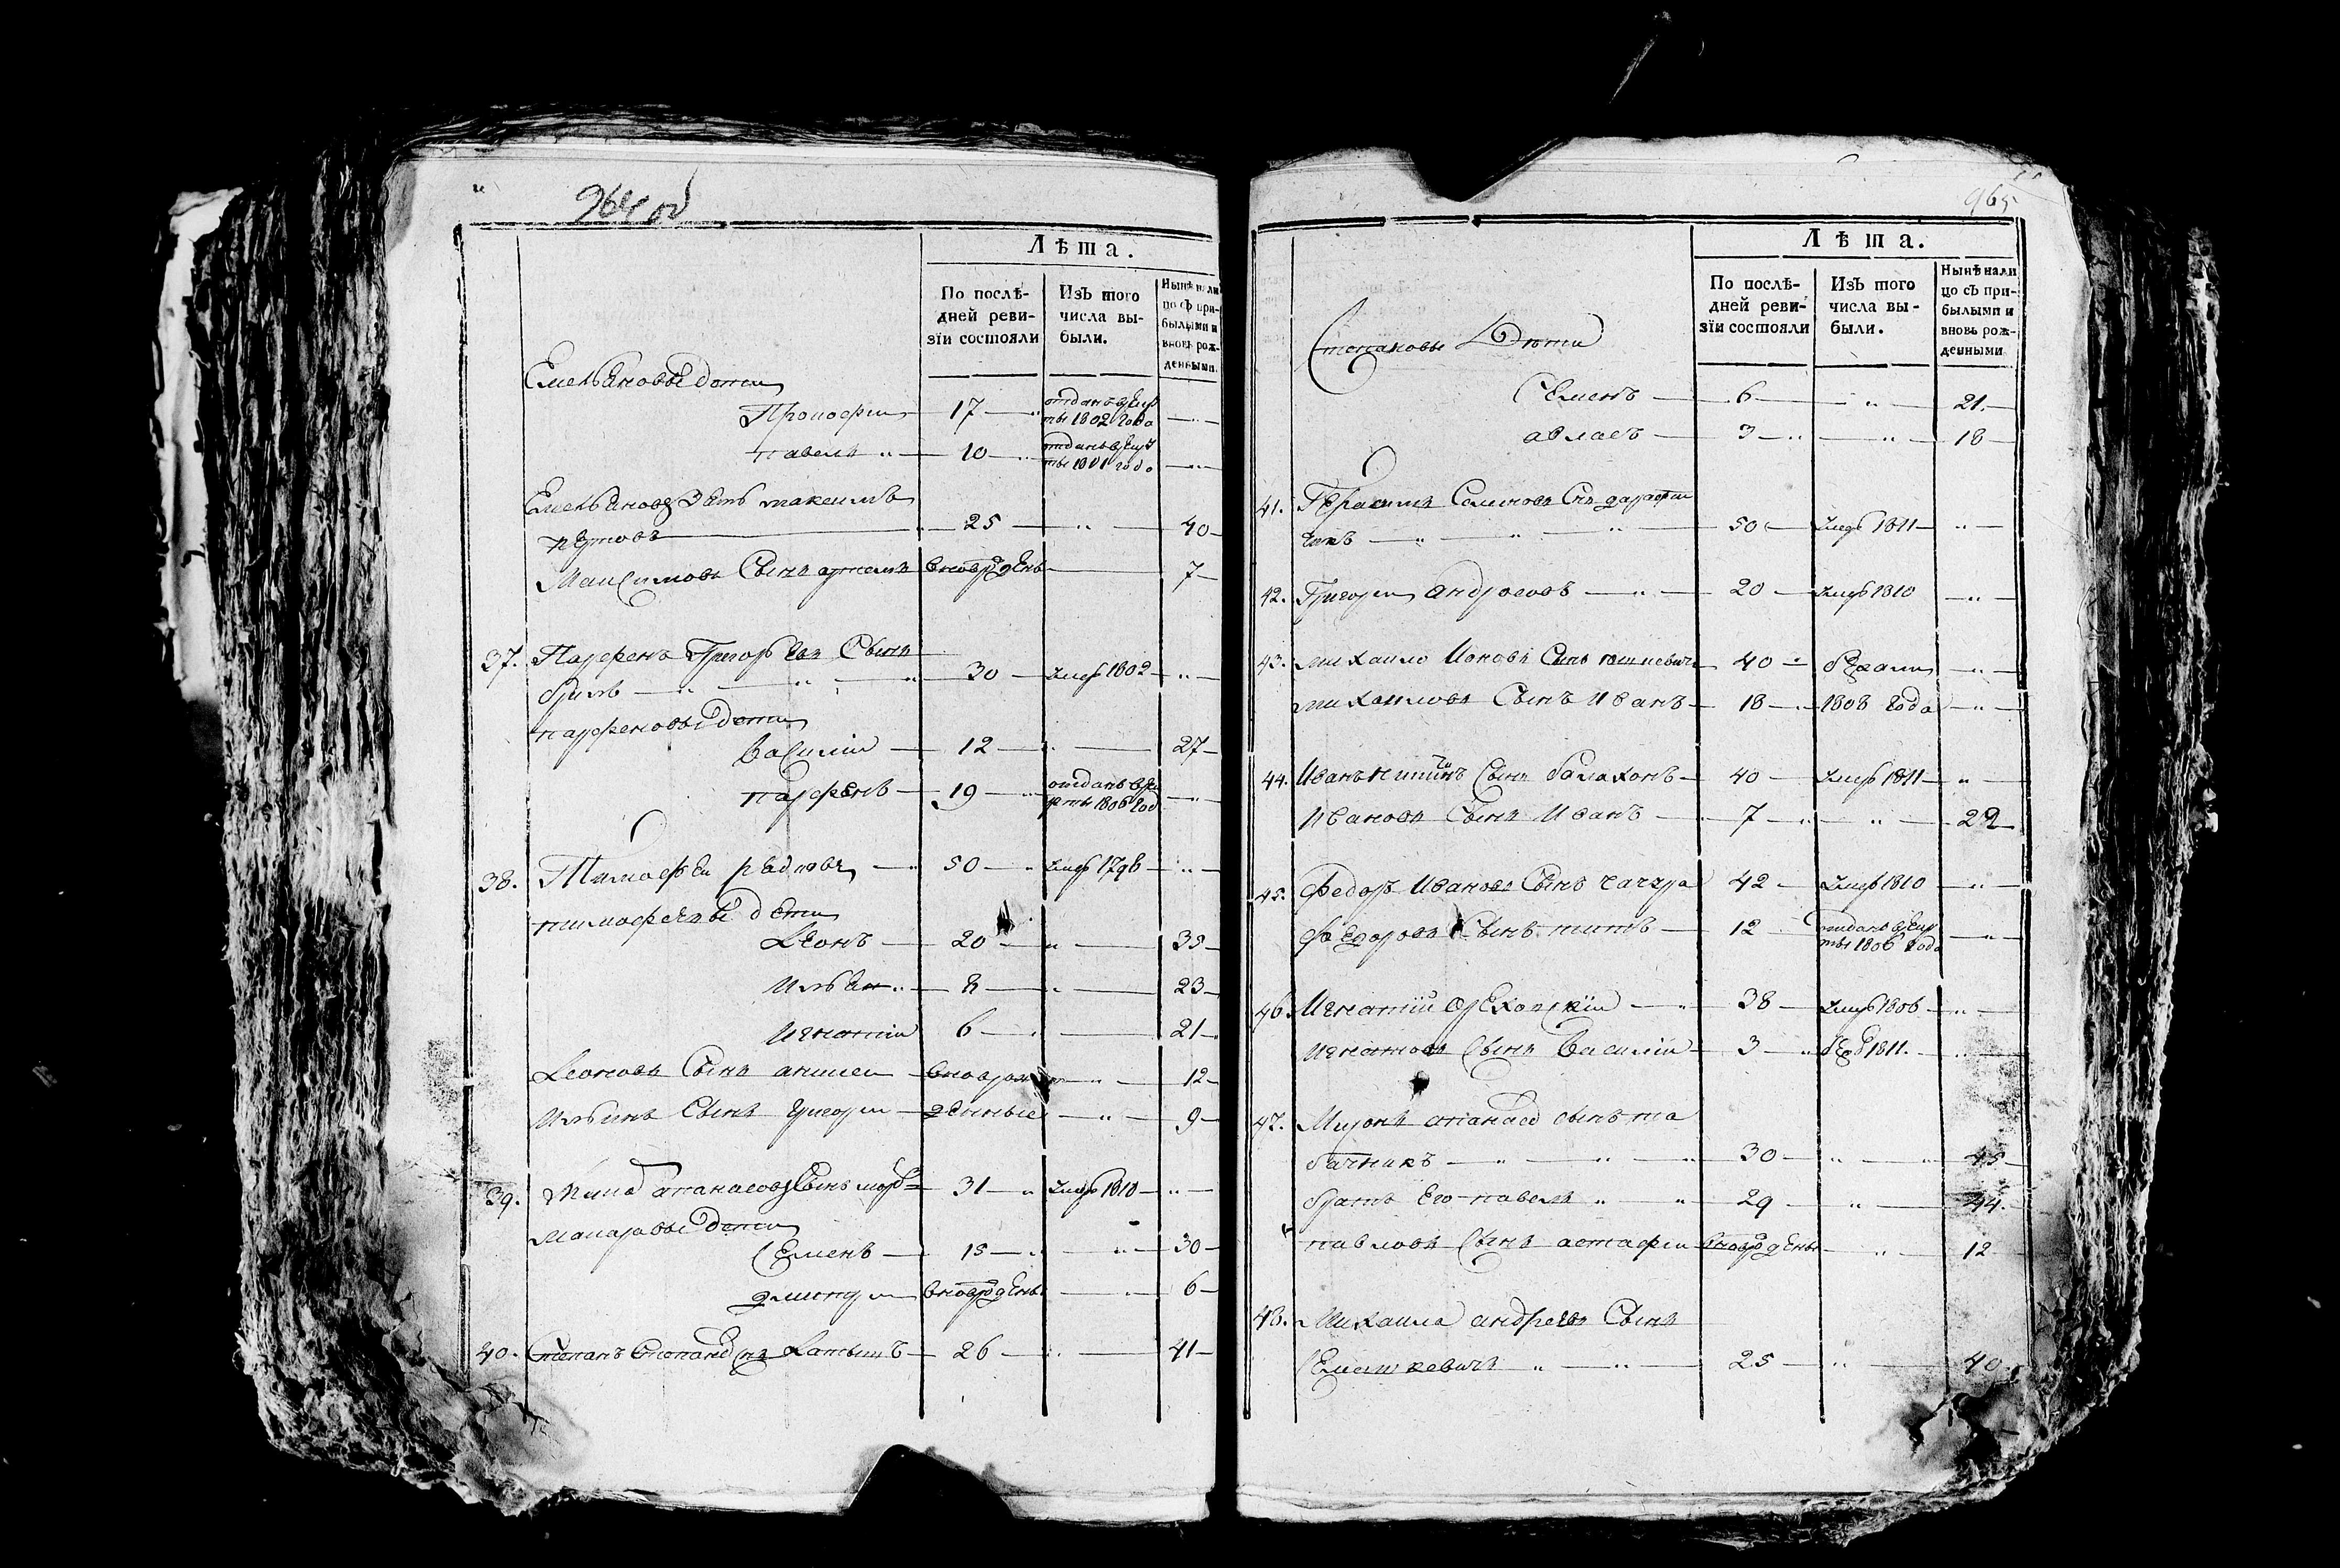 964 об
Лѣта.
По послѣ-
дней реви-
зїи состояли
Изъ того
числа вы-
были.
Нынѣ нали
цо съ при-
былыми и
вновь рож-
денными.
Емельяновы дети
Прокофіи 17 отданъ врекру
ты 1802 года
павелъ 10 отданъ врекру
ты года
Емельяновъ зять максимъ
25 40
Максимовъ Сынъ вновь рожденъ 7
37. Парфенъ Григорьевъ Сынъ
30 умеръ 1802
парфеновы дети
Василіи 12 27
парфенъ 19 отданъ врек
руты 1806 год
38. Тимофеи 50 умеръ 1798
тимофеевы дети
Леонъ 20 35
Илья 8 23
Игнатіи 6 21
Леоновъ Сынъ вновь рож 12
Ильинъ Сынъ григореи денные 9
39. апанасовъ Сынъ 31 умеръ 1810
макаровы дети
Семенъ 15 30
дмитреи вновь рожденъ 6
40. Степанъ 26 41
965
Лѣта.
По послѣ-
дней реви-
зїи состояли
Изъ того
числа вы-
были.
Нынѣ нали
цо съ при-
былыми и
вновь рож-
денными
Степановы Дети
Семенъ 6 21
авласъ 3 18
41. Герасимъ
50 умеръ 1811
42. Григореи андросовъ 20 умеръ 1810
43. михаило Ионовъ Сынъ 40 бежали
михаиловъ Сынъ Иванъ 18 1808 года
44. Иванъ Сынъ балахонъ 40 умеръ 1811
Ивановъ Сынъ Иванъ 7 22
45. Федоръ Ивановъ Сынъ 42 умеръ 1810
федоровъ Сынъ титъ 12 отданъ врекру
ты 1806 года
46. Игнатіи Ореховскіи 38 умеръ 1806
Игнатовъ Сынъ Василіи 3 1811
47. Миронъ апанасо сынъ та
бачникъ 30 45
братъ Его павелъ 29 44
павловъ Сынъ астафеи вновь рожденъ 12
48. Михаила андреевъ Сынъ
25 40